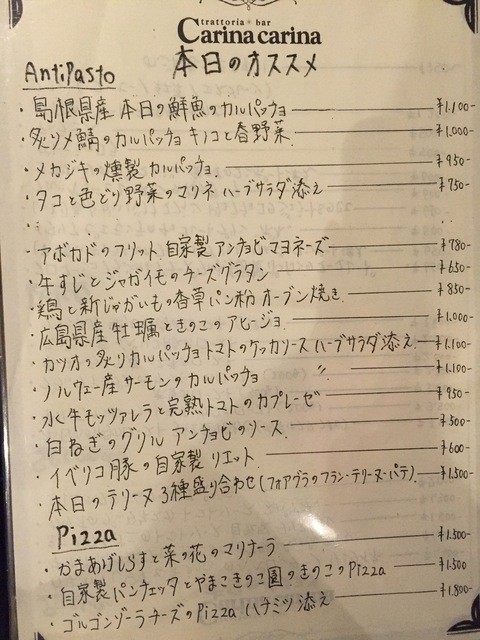 trattoria * bar
Carina carina
本日のオススメ
AntiPasto
・島根県産 本日の鮮魚のカルパッチョ ¥1.100-
・炙リ〆鯖のカルパッチョ キノコと春野菜. ¥1.000-
・メカジキの燻製カルパッチョ. ¥950-
・タコと色どり野菜のマリネ ハーブサラダ添え ¥750-
・
・アボカドのフリット 自家製アンチョビマヨネーズ ¥780-
・牛すじとジャガイモのチーズグラタン ¥650-
・鶏と新じゃがいもの香草パン粉オーブン焼き. ¥850-
・広島県産牡蠣ときのこのアヒージョ. ¥1.000-
・カツオの炙りカルパッチョトマトのケッカソース ハーブサラダ添え ¥1.100-
・ノルウェー産サーモンのカルパッチョ 〃 ¥1.100-
・水牛モッツァレラと完熟トマトのカプレーゼ ¥950-
・白ねぎのグリル アンチョビのソース. ¥500-
・イベリコ豚の自家製リエット. ¥600-
・本日のテリーヌ 3種盛り合わせ(フォアグラのフラン・テリーヌ・パテ) ¥1.500-
Pizza
・かまあげしらすと菜の花のマリナーラ ¥1.500-
・自家製パンチェッタとやまこきのこ園のきのこのPizza ¥1.500
・ゴルゴンゾーラチーズのPizza ハチミツ添え ¥1.800-